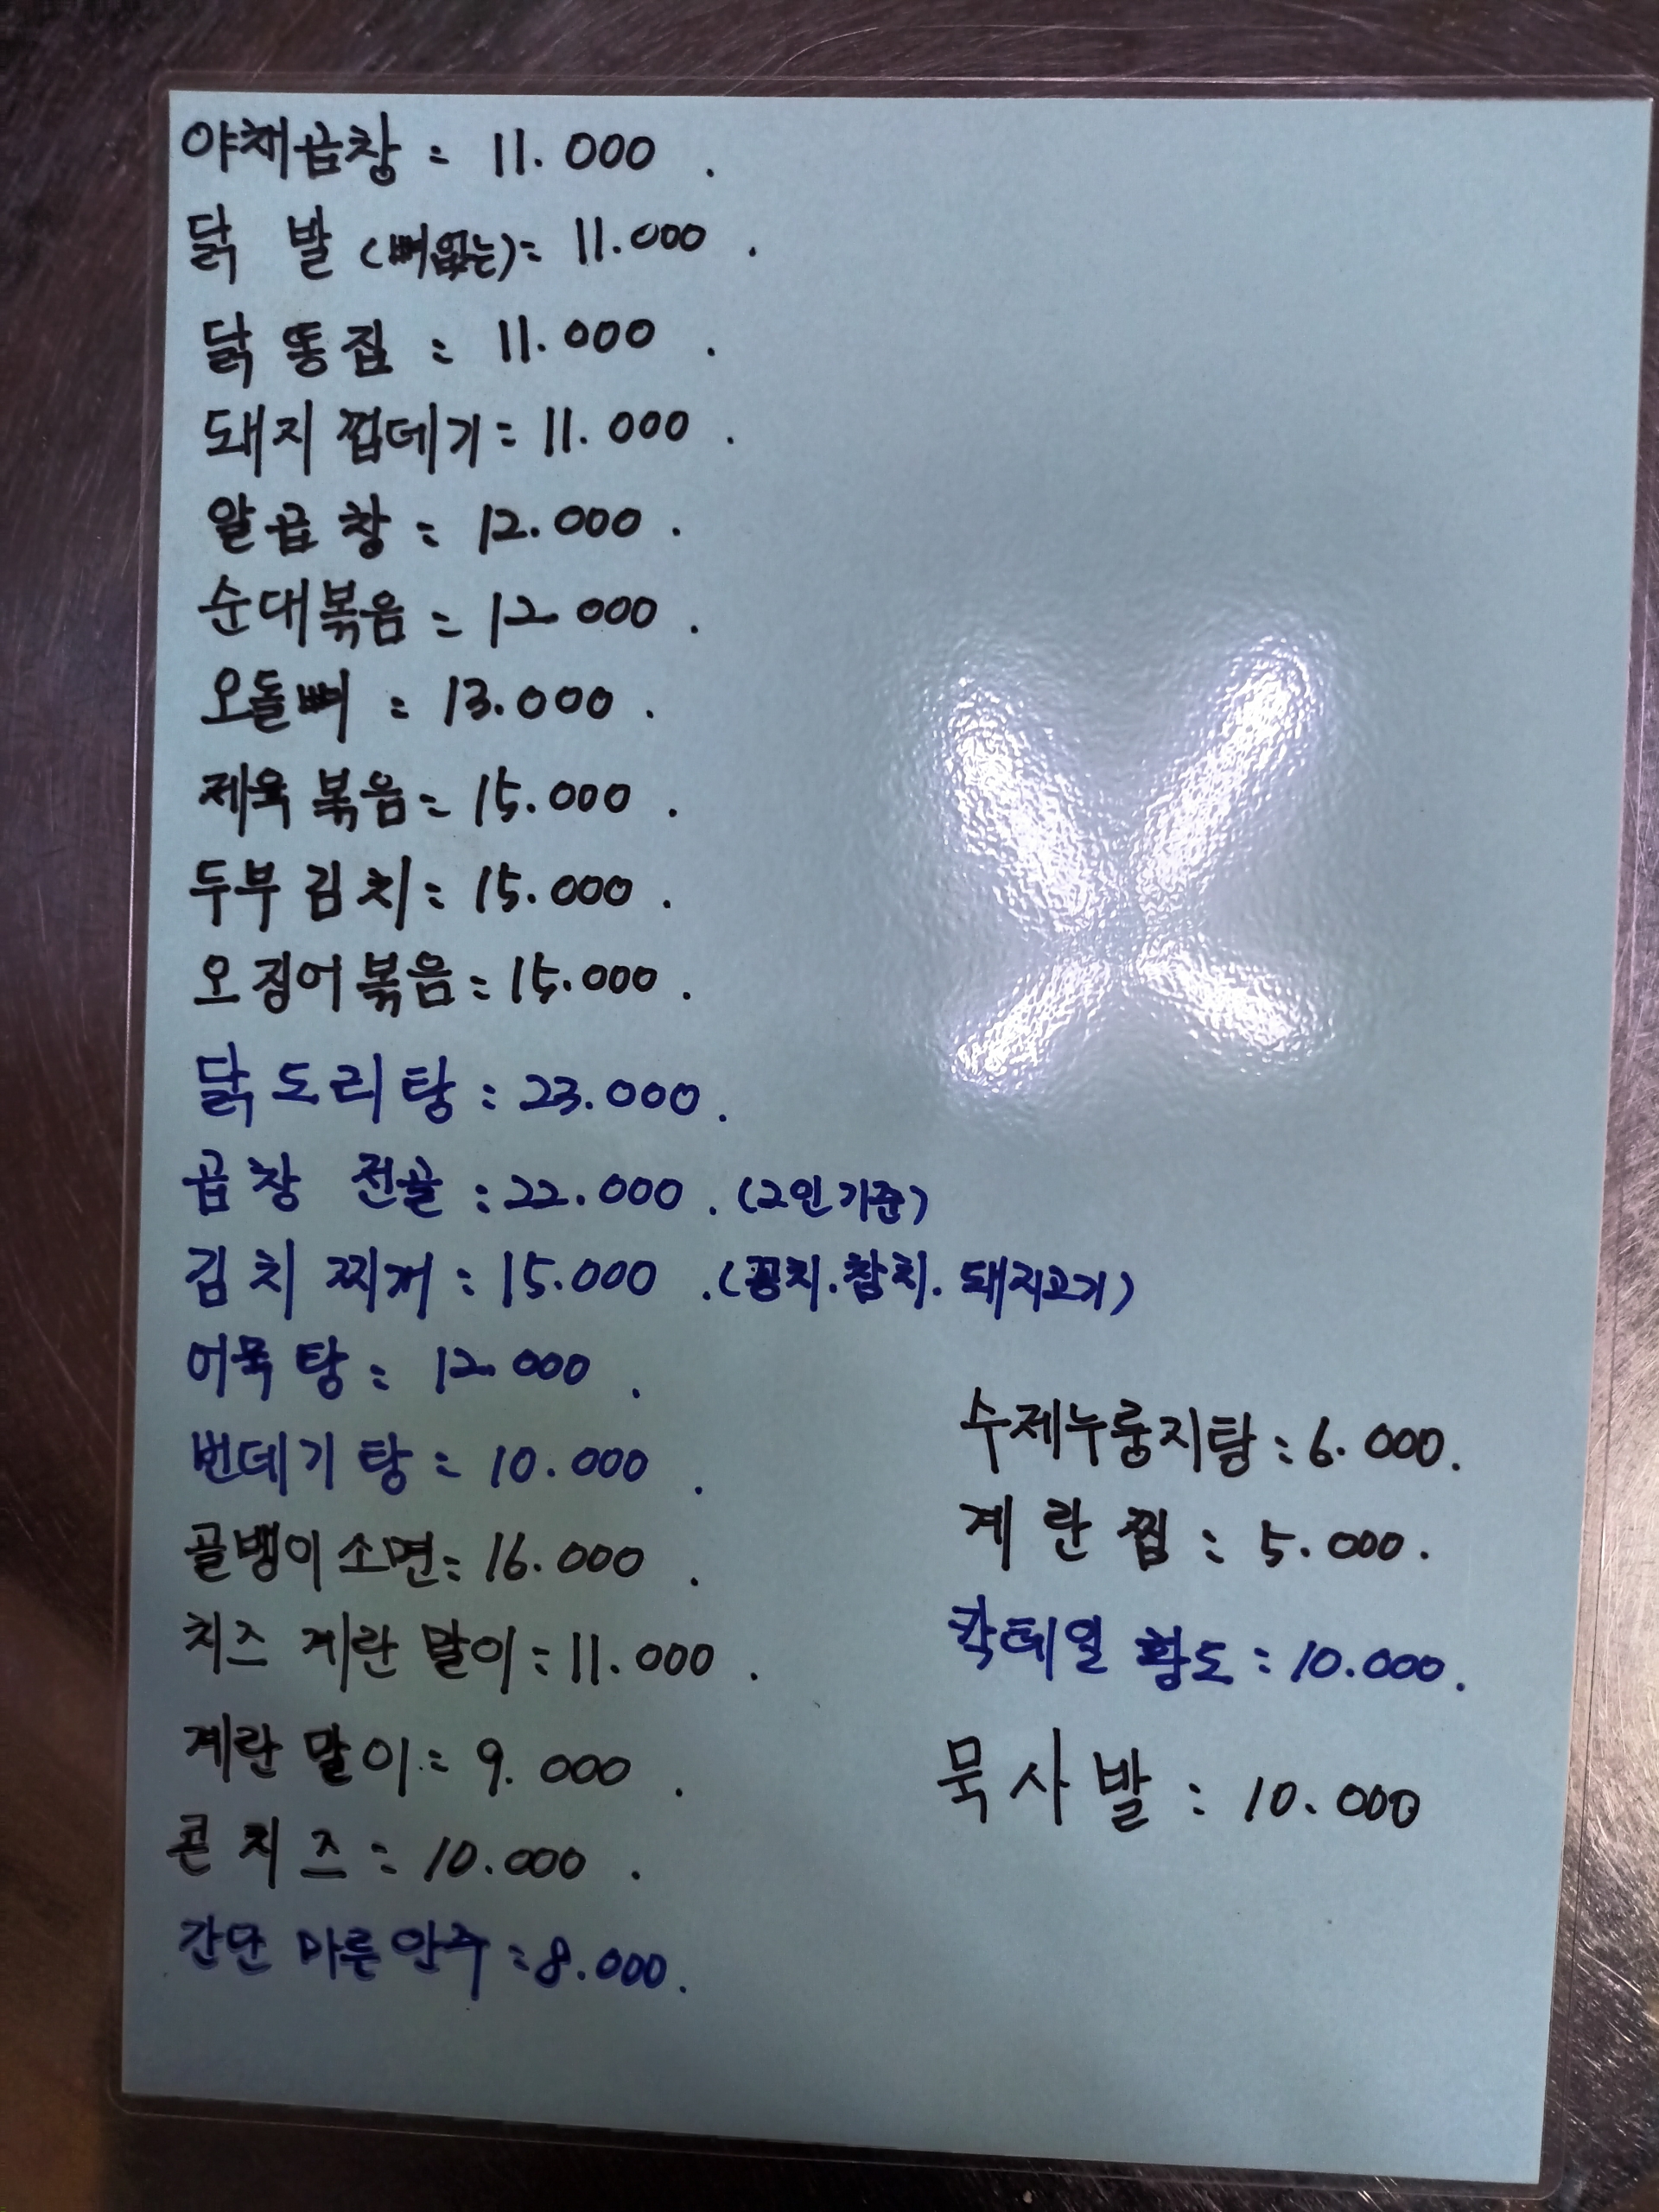 야채곱창 = 11.000 .
닭 발 (뼈없는) = 11.000 .
닭 똥집 = 11.000 .
돼지 껍데기 = 11.000 .
알곱창 = 12.000 .
순대볶음 = 12.000 .
오돌뼈 = 13.000 .
제육 볶음 = 15.000 .
두부 김치 = 15.000 .
오징어 볶음 = 15.000 .
닭도리탕 : 23.000 .
곱창 전골 : 22.000 . (2인기준)
김치 찌개 : 15.000 . (꽁치. 참치. 돼지고기)
어묵탕 : 12.000 .
번데기탕 = 10.000 .
골뱅이 소면 = 16.000 .
치즈 계란 말이 = 11.000 .
계란 말이 = 9.000 .
콘치즈 = 10.000 .
간단 마른안주 : 8.000 .
수제누룽지탕 : 6.000 .
계란찜 : 5.000 .
칵테일 황도 : 10.000 .
묵사발 : 10.000